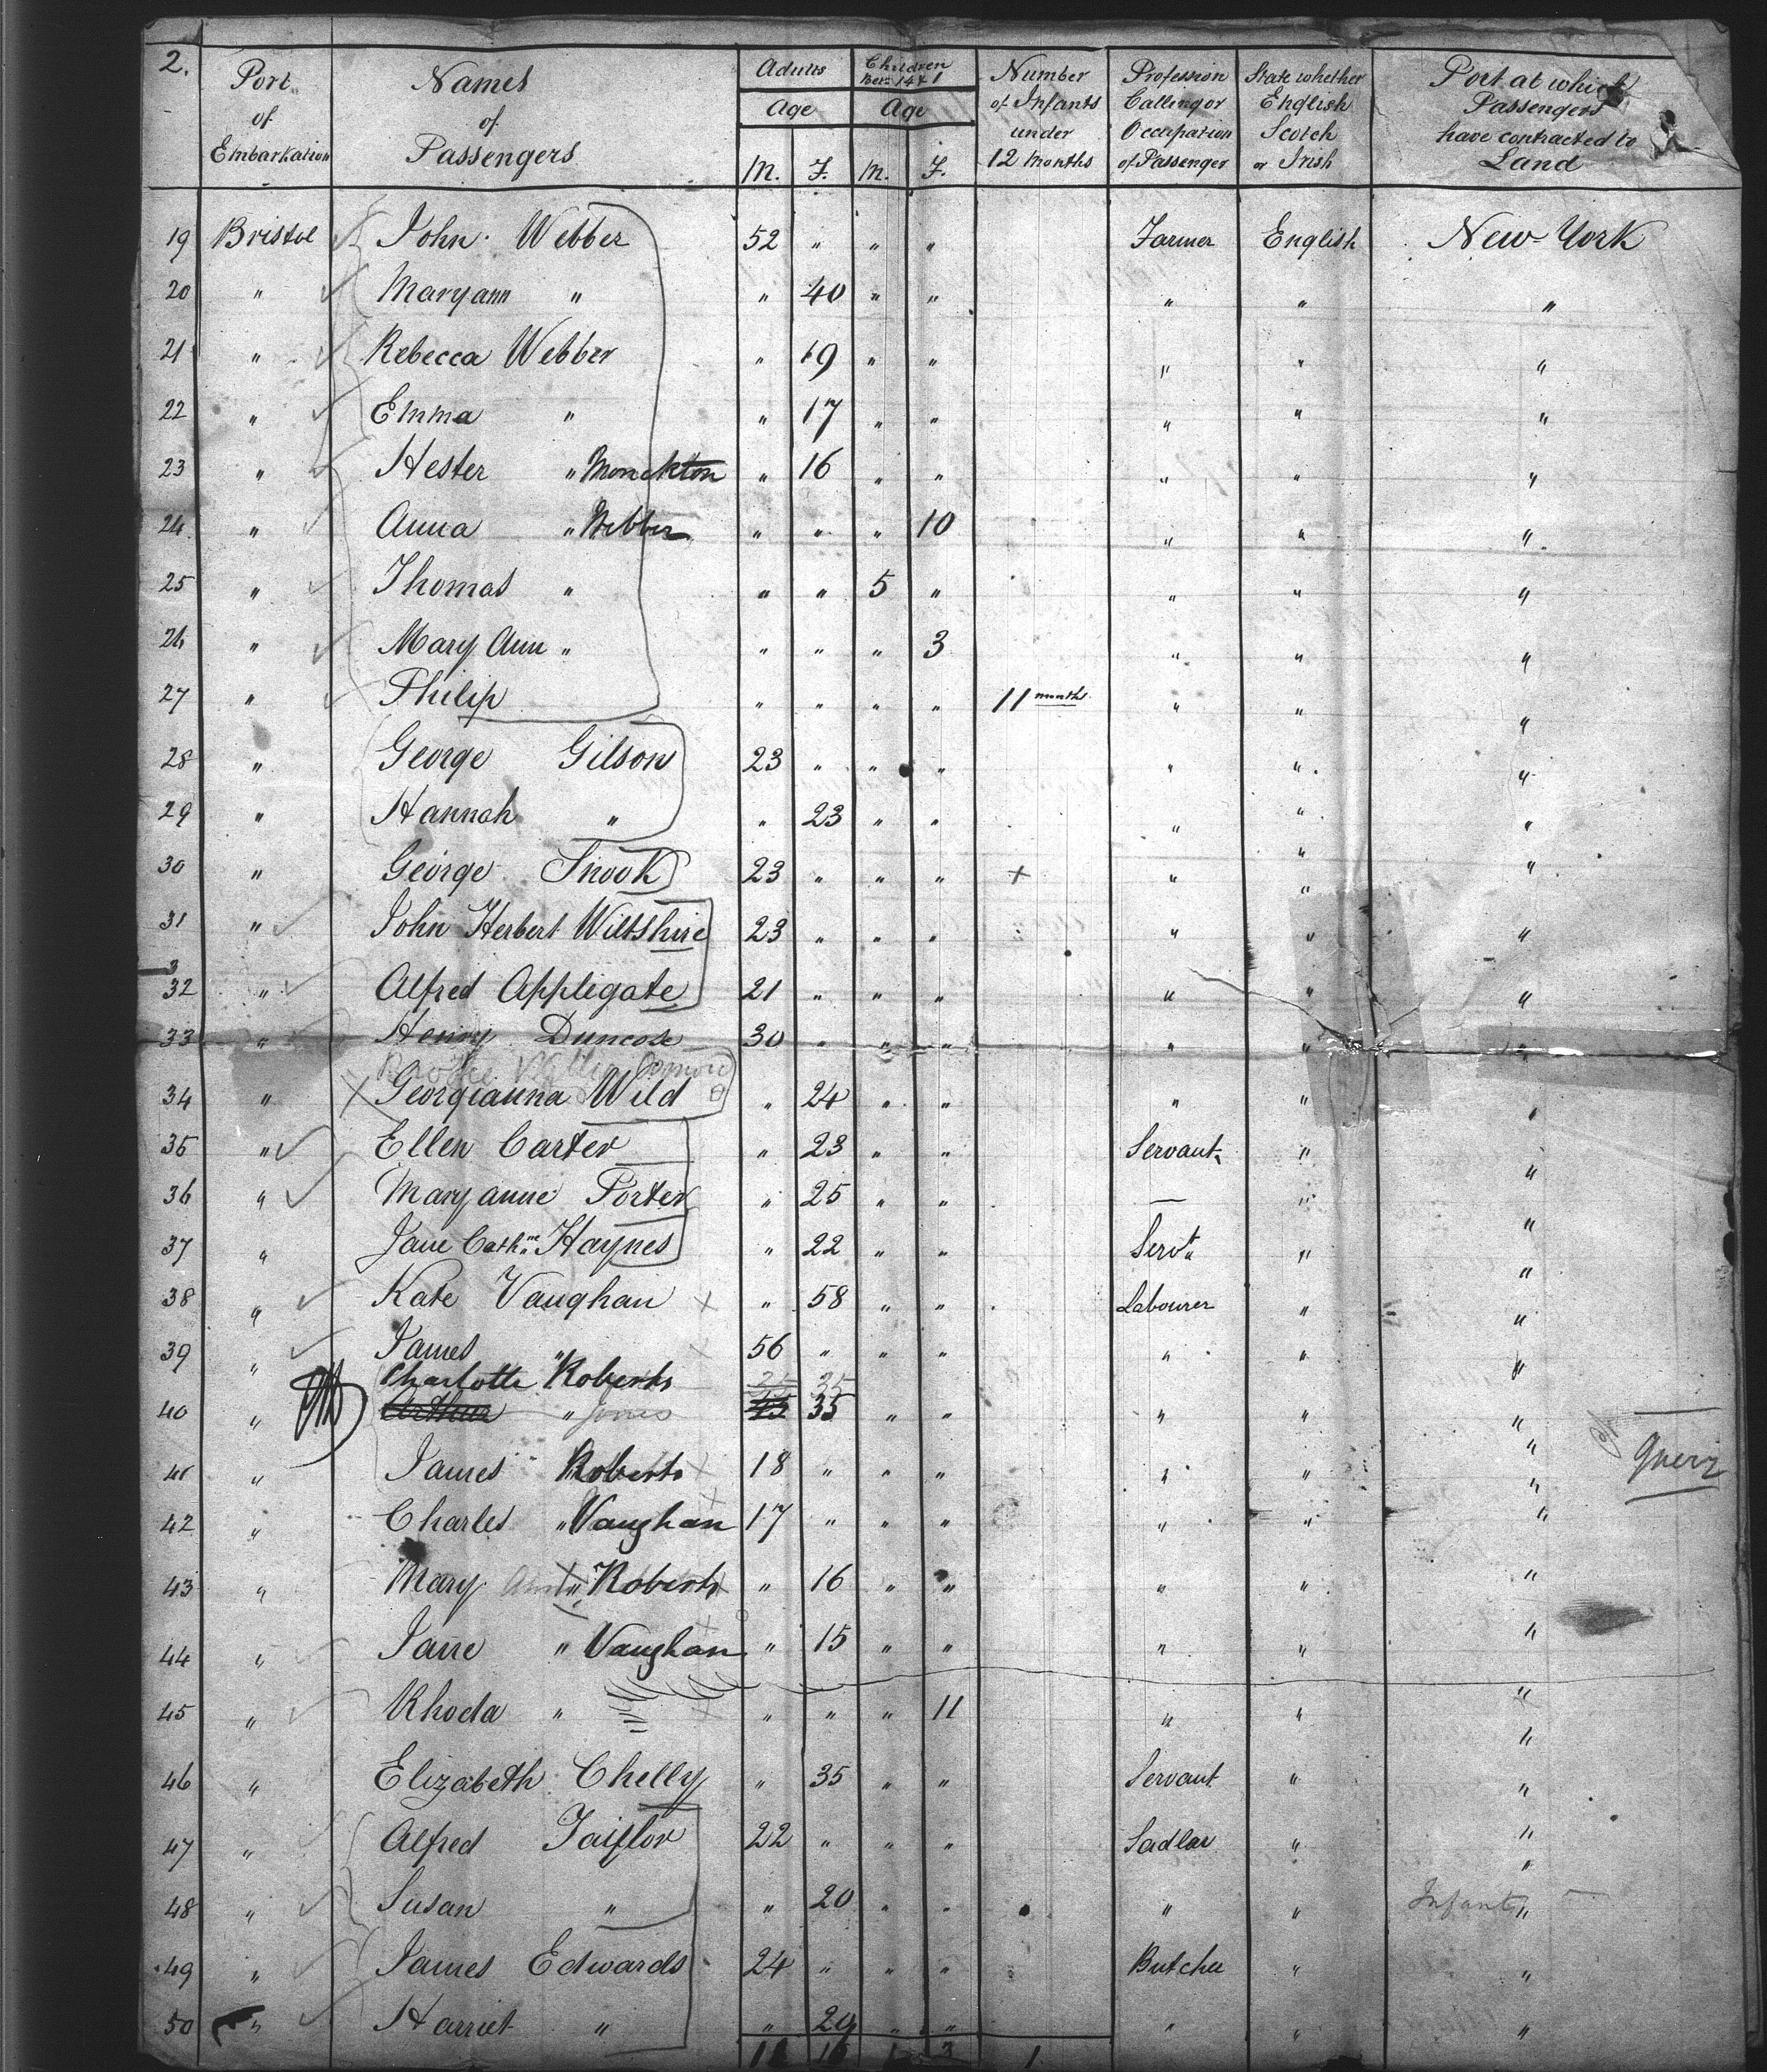 2.
Port of Embarkation | Names of Passengers | Adults Age M. F. | Children Betn 14 & 1 Age M. F. | Number of Infants under 12 Months | Profession Calling or Occupation of Passenger | State whether English Scotch or Irish | Port at which Passengers have contracted to Land
19 Bristol John Webber 52 " " " Farmer English New York
20 " Maryann " " 40 " " " " "
21 " Rebecca Webber " 19 " " " " "
22 " Emma " " 17 " " " " "
23 " Hester " Monckton " 16 " " " " "
24 " Anna " Webber " " " 10 " " "
25 " Thomas " " " 5 " " " "
26 " Mary Ann " " " " 3 " " "
27 " Philip " " " " 11 months " " "
28 " George Gilson 23 " " " " " "
29 " Hannah " " 23 " " " " "
30 " George Snook 23 " " " + " " "
31 " John Herbert Wiltshire 23 " " " " " "
3
32 " Alfred Appligate 21 " " " " " "
33 " Henry Duncose 30 " " " " " "
34 " Georgianna Wild " 24 " " " " "
35 " Ellen Carter " 23 " " Servant " "
36 " Maryanne Porter " 25 " " — " "
37 " Jane Cathne Haynes " 22 " " Servt " "
38 " Kate Vaughan " 58 " " Labourer " "
39 " James " 56 " " " " " "
Charlotte Roberts 25 35
40 " Arthur " Jones 45 35 " " " " "
41 " James Roberts 18 " " " " " "
Query
42 " Charles " Vaughan 17 " " " " " "
43 " Mary " Roberts " 16 " " " " "
44 " Jane " Vaughan " 15 " " " " "
45 " Rhoda " " " " 11 " " "
46 " Elizabeth Chelly " 35 " " Servant " "
47 " Alfred Taylor 22 " " " Sadlar " "
48 " Susan " " 20 " " " " Infants "
49 " James Edwards 24 " " " Butcher " "
50 " Harriet " " 29 " " " " "
16 1 3 1